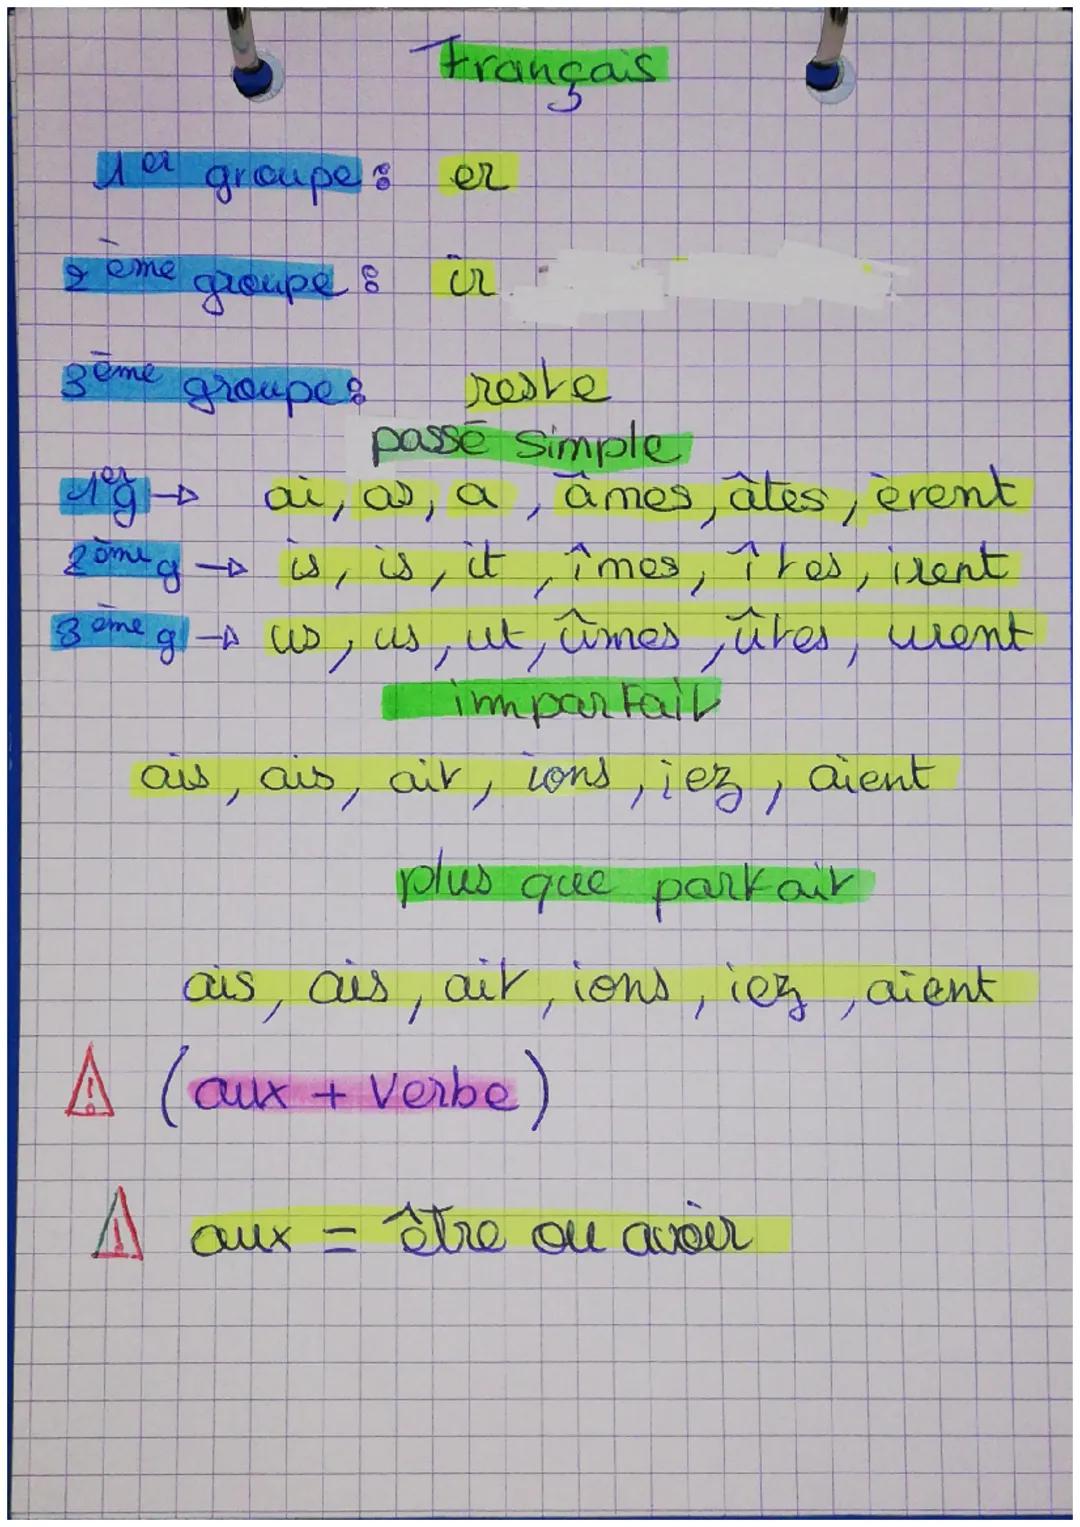 Français
1er groupe : er
2ème groupe : ir
3ème groupe : reste
passé simple
1er g → ai, as, a, âmes, âtes, èrent
2ème g → is, is, it, îmes, îtes, irent
3ème g → us, us, ut, ûmes, ûtes, urent
imparfait
ais, ais, ait, ions, iez, aient
plus que parfait
ais, ais, ait, ions, iez, aient
(aux + Verbe)
aux = être ou avoir